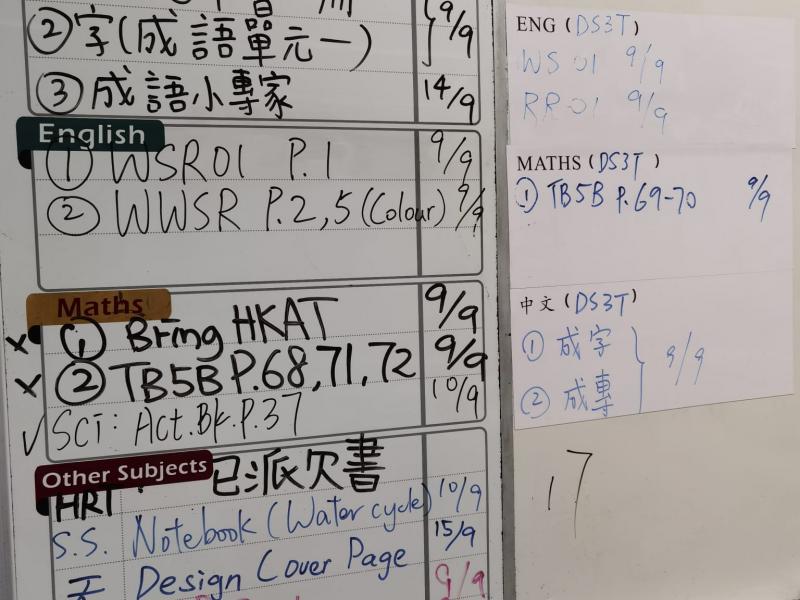 9/9
② 字(成語單元一)
③ 成語小專家 14/9
English
① WSR01 P.1 9/9
② WWSR P.2,5 (Colour) 9/9
Maths
x ① Bring HKAT 9/9
x ② TB5B P.68,71,72 9/9
✓ Sci: Act.Bk.P.37 10/9
Other Subjects
HRT 已派欠書
S.S. Notebook (Water cycle) 10/9
Design Cover Page 15/9
9/9
ENG (DS3T)
WS 01 9/9
RR01 9/9
MATHS (DS3T)
① TB5B P.69-70 9/9
中文 (DS3T)
① 成字
② 成專 9/9
17